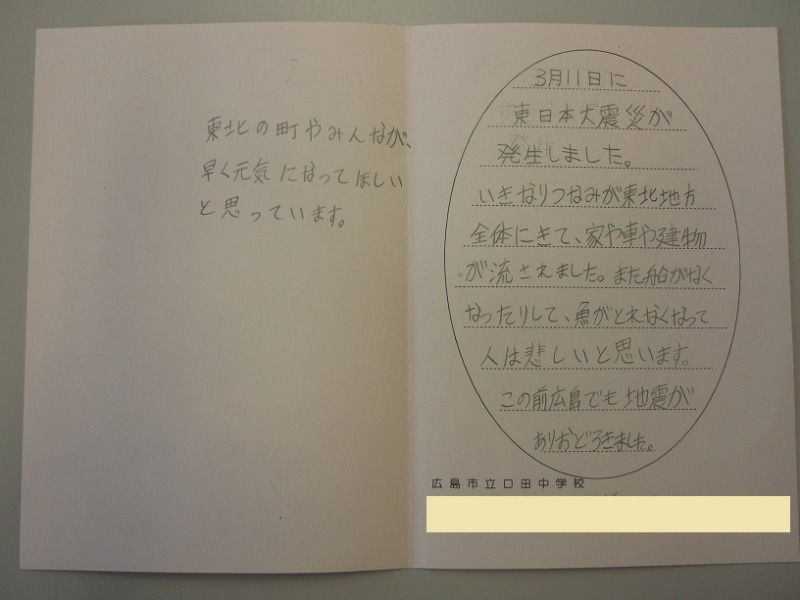 3月11日に
東日本大震災が
発生しました。
いきなりつなみが東北地方
全体にきて、家や車や建物
が流されました。また船がなく
なったりして、魚がとれなくなって
人は悲しいと思います。
この前広島でも地震が
ありおどろきました。
広島市立口田中学校
東北の町やみんなが、
早く元気になってほしい
と思っています。